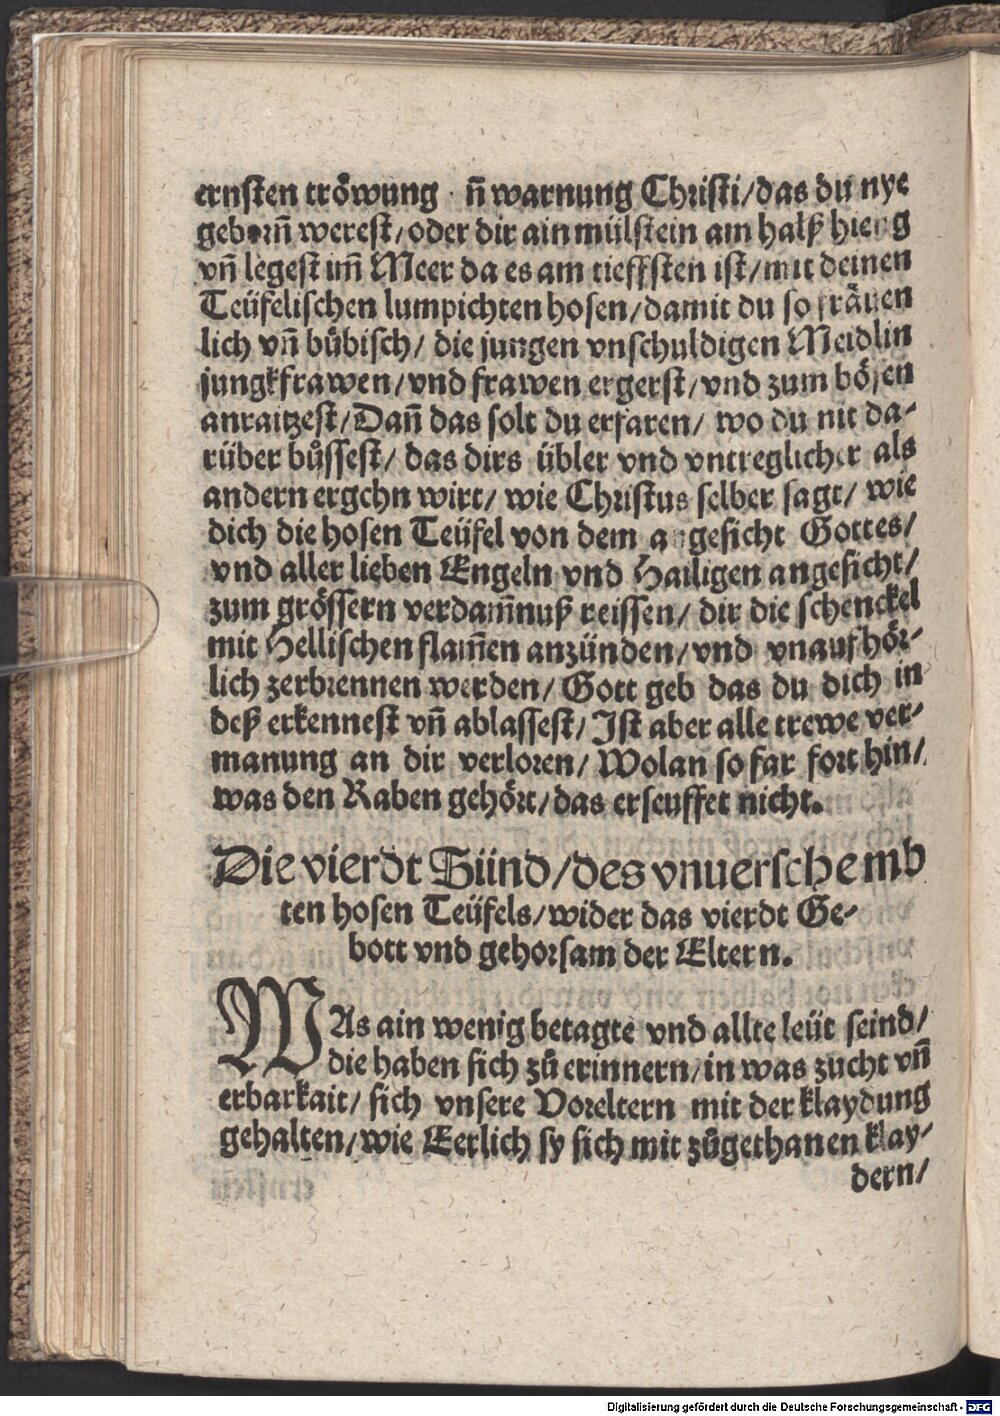 ernsten tröwung ñ warnung Christi/das du nye
geborñ werest/oder dir ain mülstein am halß hieng
vñ legest im̃ Meer da es am tieffsten ist/mit deinen
Teüfelischen lumpichten hosen/damit du so fräuen
lich vñ bůbisch/ die jungen vnschuldigen Meidlin
jungkfrawen/vnd frawen ergerst/vnd zum bösen
anraitzest/Dañ das solt du erfaren/ wo du nit da-
rüber bůssest/ das dirs übler vnd vntreglicher als
andern ergehn wirt/ wie Christus selber sagt/ wie
dich die hosen Teüfel von dem angesicht Gottes/
vnd aller lieben Engeln vnd Hailigen angesicht/
zum grössern verdam̃nuß reissen/ dir die schenckel
mit Hellischen flam̃en anzünden/vnd vnaufhör-
lich zerbrennen werden/ Gott geb das du dich in
deß erkennest vñ ablassest/ Ist aber alle trewe ver-
manung an dir verloren/ Wolan so far fort hin/
was den Raben gehört/das erseuffet nicht.
Die vierdt Sünd/des vnuerschemb
ten hosen Teüfels/wider das vierdt Ge-
bott vnd gehorsam der Eltern.
WAs ain wenig betagte vnd allte leüt seind/
die haben sich zů erinnern/in was zucht vñ
erbarkait/ sich vnsere Voreltern mit der klaydung
gehalten/wie Eerlich sy sich mit zůgethanen klay-
dern/
Digitalisierung gefördert durch die Deutsche Forschungsgemeinschaft - DFG